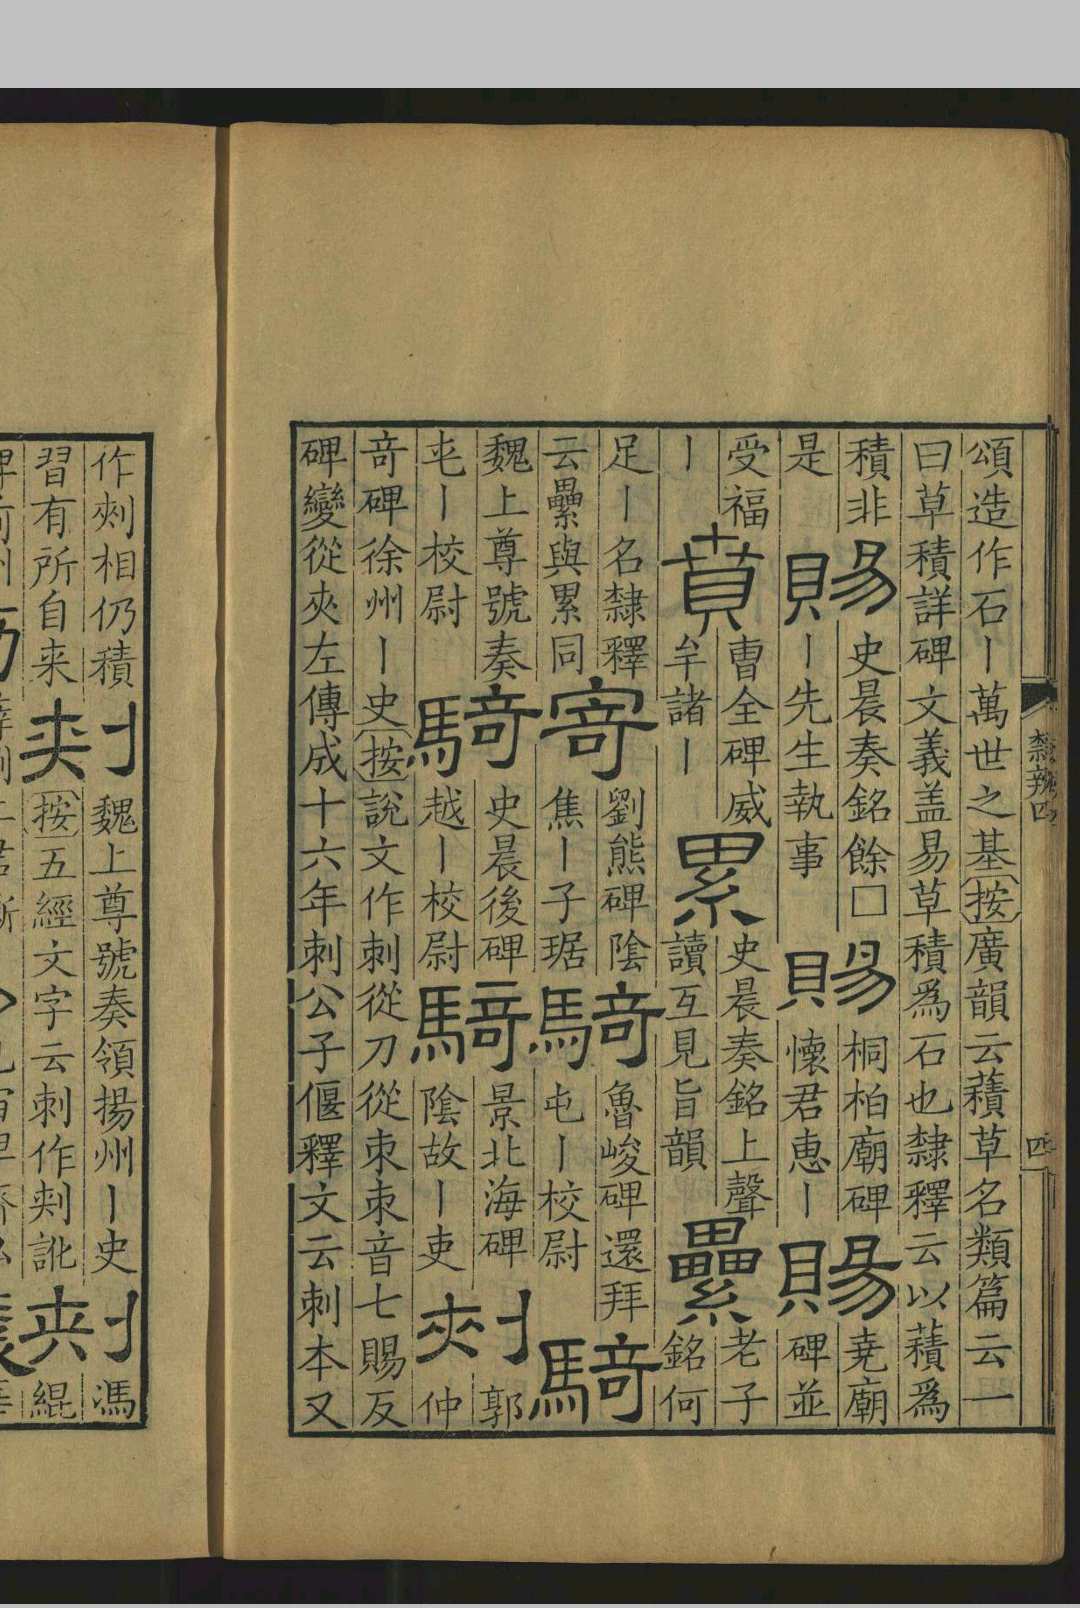 頌造作石丨萬世之基按廣韻云𧂐草名類篇云一
曰草積詳碑文義盖易草積爲石也隸釋云以𧂐爲
積非
是
賜
史晨奏銘餘□
丨先生執事
賜
桐柏廟碑
懷君恵丨
賜
堯廟
碑並
受福
丨
賁
曹全碑威
牟諸丨
累
史晨奏銘上聲
讀互見旨韻
纍
老子
銘何
足丨名隸釋
云纍與累同
寄
劉熊碑陰
焦丨子琚
騎
魯峻碑還拜
屯丨校尉
騎
魏上尊號奏
屯丨校尉
騎
史晨後碑
越丨校尉
騎
景北海碑
陰故丨吏
刾
郭
仲
竒碑徐州丨史按説文作刺從刀從朿朿音七賜反
碑變從夾左傳成十六年刺公子偃釋文云刺本又
隸辨四
四
作刾相仍積
習有所自来
刾
魏上尊號奏領揚州丨史
按五經文字云刺作刾訛
刾
馮
緄